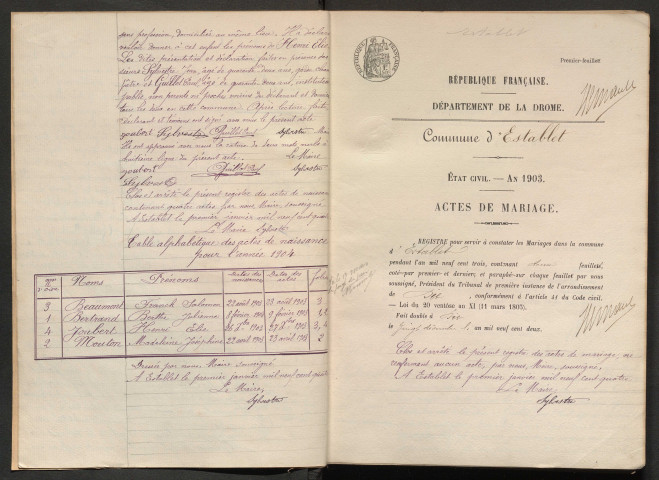 sans profession, domiciliée au même lieu. Il a déclaré
vouloir donner à cet enfant les prénoms de Henri Elie.
Les dites présentation et déclaration faites en présence des
sieurs Sylvestre âgé de quarante deux ans
et Guillot âgé de quarante deux ans, instituteur
public, non parents ni proche voisins du déclarant et
tous les deux en cette commune. Après lecture faite,
déclarant et témoins ont signé avec nous le présent acte
Joubert Sylvestre Guillot Sylvestre
Ils ont approuvé avec nous la rature de deux mots nuls à
huitième ligne du présent acte. Le Maire
Joubert Guillot Sylvestre
Sylvestre
Clos et arrêté le présent registre des actes de naissance
contenant quatre actes par nous, Maire, soussigné.
A Establet le premier janvier mil neuf cent quatre
Le Maire, Sylvestre
Table alphabétique des actes de naissance
pour l'année 1904
Noms Prénoms Dates des naissances Dates des actes
3 Beaumont Franck Salomon 22 août 1903 23 août 1903 3
1 Bertrand Berthe Julienne 8 février 1903 9 février 1903
4 Joubert Henri Elie 26 7bre 1903 27 7bre 1903 3, 4
2 Moulon Madeleine Joséphine 22 avril 1903 23 avril 1903 2
Dressée par nous, Maire soussigné
A Establet le premier janvier mil neuf cent quatre
Le Maire,
Sylvestre
Establet
Premier feuillet
RÉPUBLIQUE FRANÇAISE.
DÉPARTEMENT DE LA DROME.
Commune d'Establet
ÉTAT CIVIL. — AN 1903.
ACTES DE MARIAGE.
REGISTRE pour servir à constater les Mariages dans la commune
d'Establet
pendant l'an mil neuf cent trois, contenant deux feuillets,
coté par premier et dernier, et paraphé sur chaque feuillet par nous
soussigné, Président du Tribunal de première instance de l'arrondissement
de Die, conformément à l'article 41 du Code civil.
— Loi du 20 ventôse an XI (11 mars 1803).
Fait double à Die
le vingt décembre an mil neuf cent deux.
Clos et arrêté le présent registre des actes de mariage, ne
renfermant aucun acte, par nous, Maire, soussigné.
A Establet le premier janvier mil neuf cent quatre
Le Maire,
Sylvestre